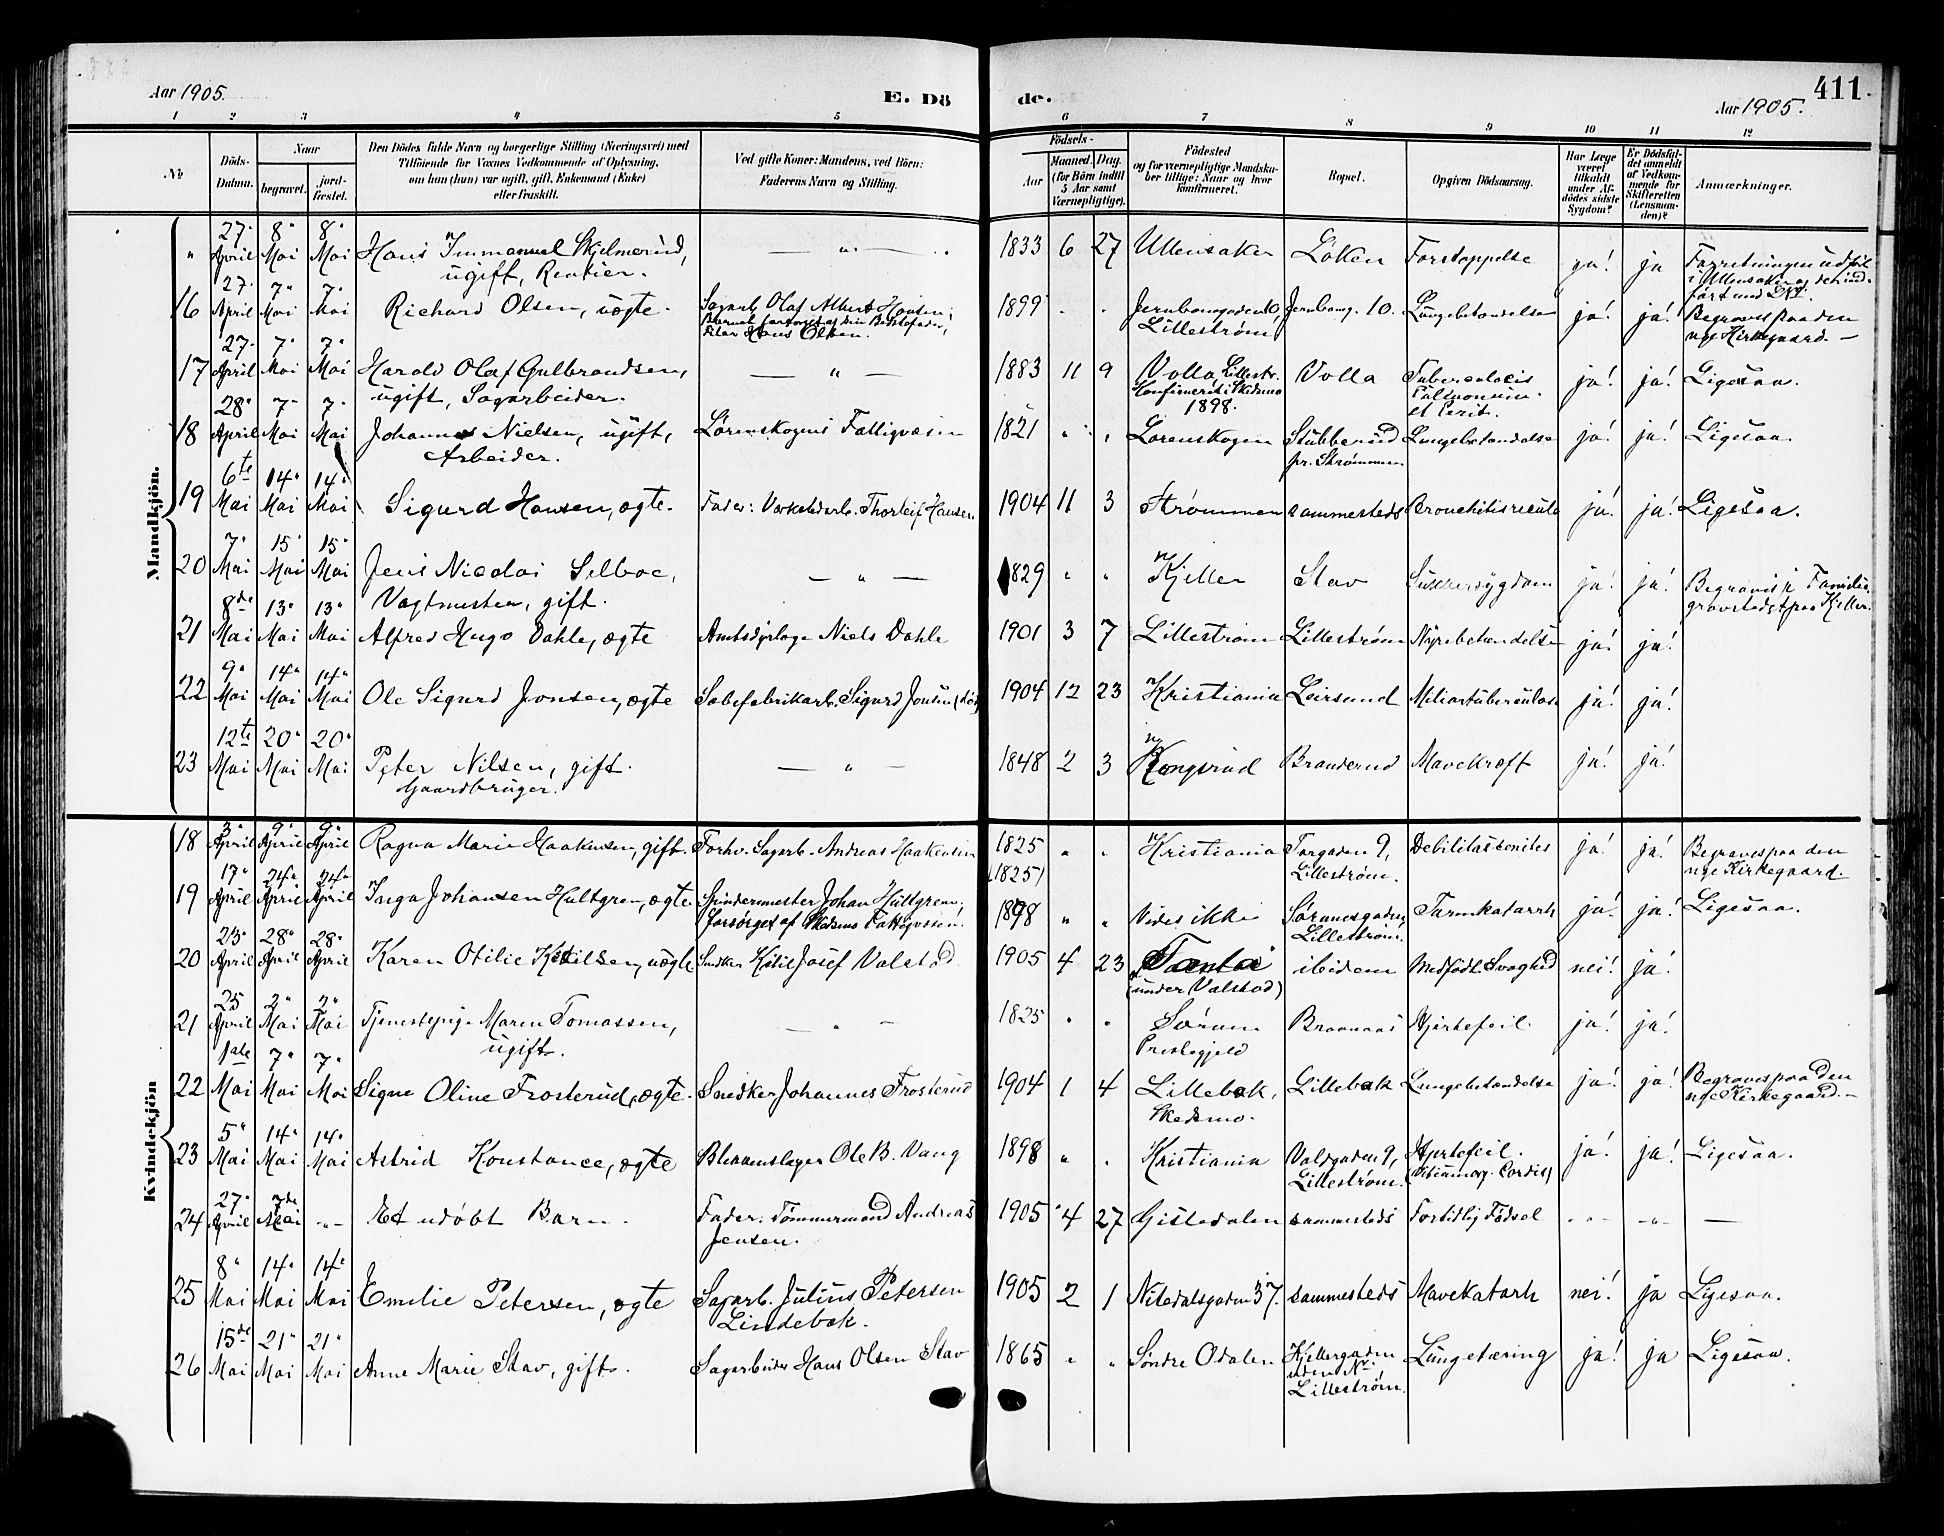 Aar 1905. E. Dö
1 2 3 4 5
No
Döds-
Datum.
Naar
begravet.
jord-
fæstet.
Den Dödes fulde Navn og borgerlige Stilling (Næringsvei) med
Tilföiende for Voxnes Vedkommende af Oplysning,
om han (hun) var ugift, gift, Enkemand (Enke)
eller fraskilt.
Ved gifte Koner: Mandens, ved Børn:
Faderens Navn og Stilling.
Mandkjön.
„ 27. April 8. Mai 8. Mai Hans Immanuel Skjelmerud, — „ —
ugift, Rentier.
16 27. April 7. Mai 7. Mai Richard Olsen, uægte. Sagarb. Olaf Albert Hansen;
Hans Olsen.
17 27. April 7. Mai 7. Mai Harald Olaf Gulbrandsen, — „ —
ugift, Sagarbeider.
18 28. April 7. Mai 7. Mai Johannes Nielsen, ugift, Lørenskogens Fattigvæsen
Arbeider.
19 6te Mai 14. Mai 14. Mai Sigurd Hansen, ægte. Fader: Værkstedarb. Thorleif Hansen
20 7. Mai 15. Mai 15. Mai Jens Nicolai Selboe, — „ —
Vagtmester, gift.
21 8de Mai 13. Mai 13. Mai Alfred Hugo Dahle, ægte Amtsdyrlæge Niels Dahle
22 9. Mai 14. Mai 14. Mai Ole Sigurd Jonsen, ægte Sæbefabrikarb. Sigurd Jonsen
23 12te Mai 20. Mai 20. Mai Peter Nilsen, gift. — „ —
Gaardbruger.
Kvindekjön
18 3. April 9. April 9. April Ragna Marie Haakensen, gift. Forhv. Sagarb. Andreas Haakensen
19 17. April 24. April 24. April Inga Johansen Hultgren, ægte Spindermester Johan Hultgren;
forsørget af Skedsmo Fattigvæsen.
20 23. April 28. April 28. April Karen Otilie Ketilsen, uægte Snedker Ketil Josef Valstad.
21 25 April 2. Mai 2. Mai Tjenestepige Maren Tomassen, — „ —
ugift.
22 1ste Mai 7. Mai 7. Mai Signe Oline Frosterud, ægte. Snedker Johannes Frosterud
23 5. Mai 14. Mai 14. Mai Astrid Konstance, ægte Blikkenslager Ole B. Vang
24 27. April 7de Mai „ Et udøbt Barn. Fader: Tømmermand Andreas
Jensen.
25 8. Mai 14. Mai 14. Mai Emelie Petersen, ægte Sagarb. Julius Petersen
Lindebæk.
26 15de Mai 21. Mai 21. Mai Anne Marie Stav, gift. Sagarbeider Hans Olsen Stav
de. 411.
Aar 1905.
6 7 8 9 10 11 12
Födsels-
Aar
Maaned. Dag.
(for Börn indtil
5 Aar samt
Værnepligtige).
Födested
og for værnepligtige Mandska-
ber tillige: Naar og hvor
konfirmeret.
Bopæl.
Opgiven Dödsaarsag.
Har Læge
været
tilkaldt
under Af-
dödes sidste
Sygdom?
Er Dödsfal-
det anmeldt
af Vedkom-
mende for
Skifteretten
(Lensman-
den)?
Anmærkninger.
1833 6 27 Ullensaker Løken Forstoppelse ja! ja Forretningen udført
i Ullensaker
1899 „ „ Jernbanegaden 10, Jernbaneg. 10. Lungebetændelse ja! ja! Begravet paa den
Lillestrøm nye Kirkegaard. —
1883 11 9 Volla Lillestr. Volla Tuberculosis ja! ja! Ligesaa.
Konfirmeret i Skedsmo Pulmonum
1898. et Perit.
1821 „ „ Lørenskogen Stubberud Lungebetændelse ja! ja! Ligesaa.
pr. Strømmen
1904 11 3 Strømmen sammesteds Bronchitis ja! ja! Ligesaa.
1829 „ „ Kjeller Stav Sukkersygdom ja! ja! Begravet i Familie-
gravstedet paa Kjeller.
1901 3 7 Lillestrøm Lillestrøm Nyrebetændelse ja! ja!
1904 12 23 Kristiania Leirsund Miliærtuberculose ja! ja!
1848 2 3 Kongsrud Branderud Mavekræft ja! ja!
1825 „ „ Kristiania Torgaden 9, Debilitas senilis ja! ja! Begravet paa den
(1825) Lillestrøm. nye Kirkegaard.
1898 „ „ Vides ikke Sørumsgaden, Tarmkatarrh ja! ja! Ligesaa.
Lillestrøm.
1905 4 23 ibidem Medfødt Svaghed nei! ja!
(under Valstad)
1825 „ „ Sørum Braanaas Hjertefeil. ja! ja!
Prestegjeld
1904 1 4 Lillebæk, Lillebæk Lungebetændelse ja! ja! Begravet paa den
Skedsmo. nye Kirkegaard. —
1898 „ „ Kristiania Voldgaden 9, Hjertefeil. ja! ja! Ligesaa.
Lillestrøm. (Vitium org. Cordis)
1905 4 27 Gistedalen sammesteds Fortidlig Fødsel — „ — — „ — —
1905 2 1 Nitedalsgaden 37. sammesteds Mavekatarh nei! ja Ligesaa.
1865 „ „ Søndre Odalen Kjellergaden Lungetæring ja! ja Ligesaa.
uden Nr.
Lillestrøm.